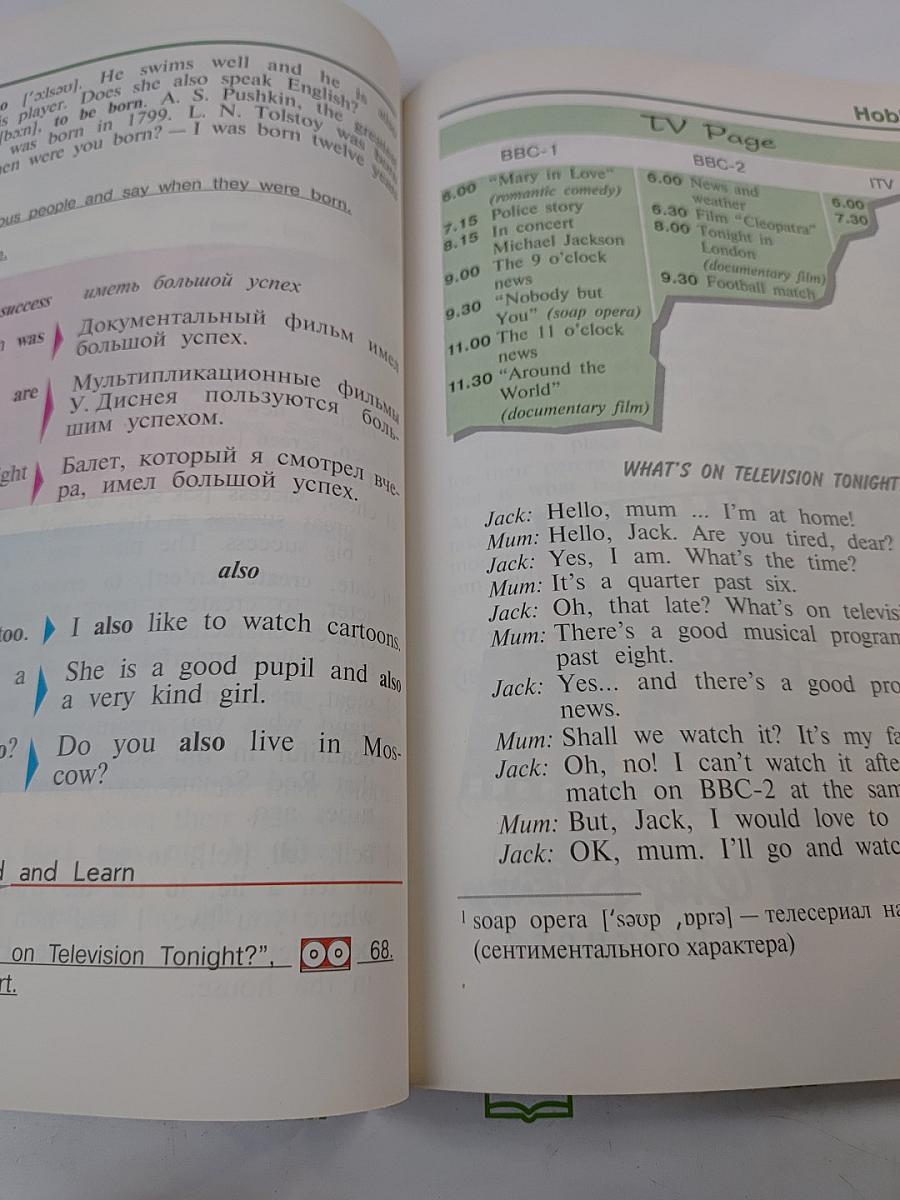 o ['ɔ:lsəʊ]. He swims well and he is also
is player. Does she also speak English?
[bɔ:n], to be born. A. S. Pushkin, the greatest
was born in 1799. L. N. Tolstoy was born
en were you born? — I was born twelve years
ous people and say when they were born.
success иметь большой успех
was Документальный фильм имел
большой успех.
are Мультипликационные фильмы
У. Диснея пользуются боль-
шим успехом.
ght Балет, который я смотрел вче-
ра, имел большой успех.
also
too. I also like to watch cartoons.
a She is a good pupil and also
a very kind girl.
o? Do you also live in Mos-
cow?
d and Learn
on Television Tonight?", 68.
rt.
Hob
TV Page
BBC-1
6.00 "Mary in Love"
(romantic comedy)
7.15 Police story
8.15 In concert
Michael Jackson
9.00 The 9 o'clock
news
9.30 "Nobody but
You" (soap opera)
11.00 The 11 o'clock
news
11.30 "Around the
World"
(documentary film)
BBC-2
6.00 News and
weather
6.30 Film "Cleopatra"
8.00 Tonight in
London
(documentary film)
9.30 Football match
ITV
6.00
7.30
WHAT'S ON TELEVISION TONIGHT
Jack: Hello, mum ... I'm at home!
Mum: Hello, Jack. Are you tired, dear?
Jack: Yes, I am. What's the time?
Mum: It's a quarter past six.
Jack: Oh, that late? What's on televisi
Mum: There's a good musical program
past eight.
Jack: Yes... and there's a good pro
news.
Mum: Shall we watch it? It's my fa
Jack: Oh, no! I can't watch it afte
match on BBC-2 at the sam
Mum: But, Jack, I would love to
Jack: OK, mum. I'll go and watc
1 soap opera ['səʊp ,ɒprə] — телесериал на
(сентиментального характера)